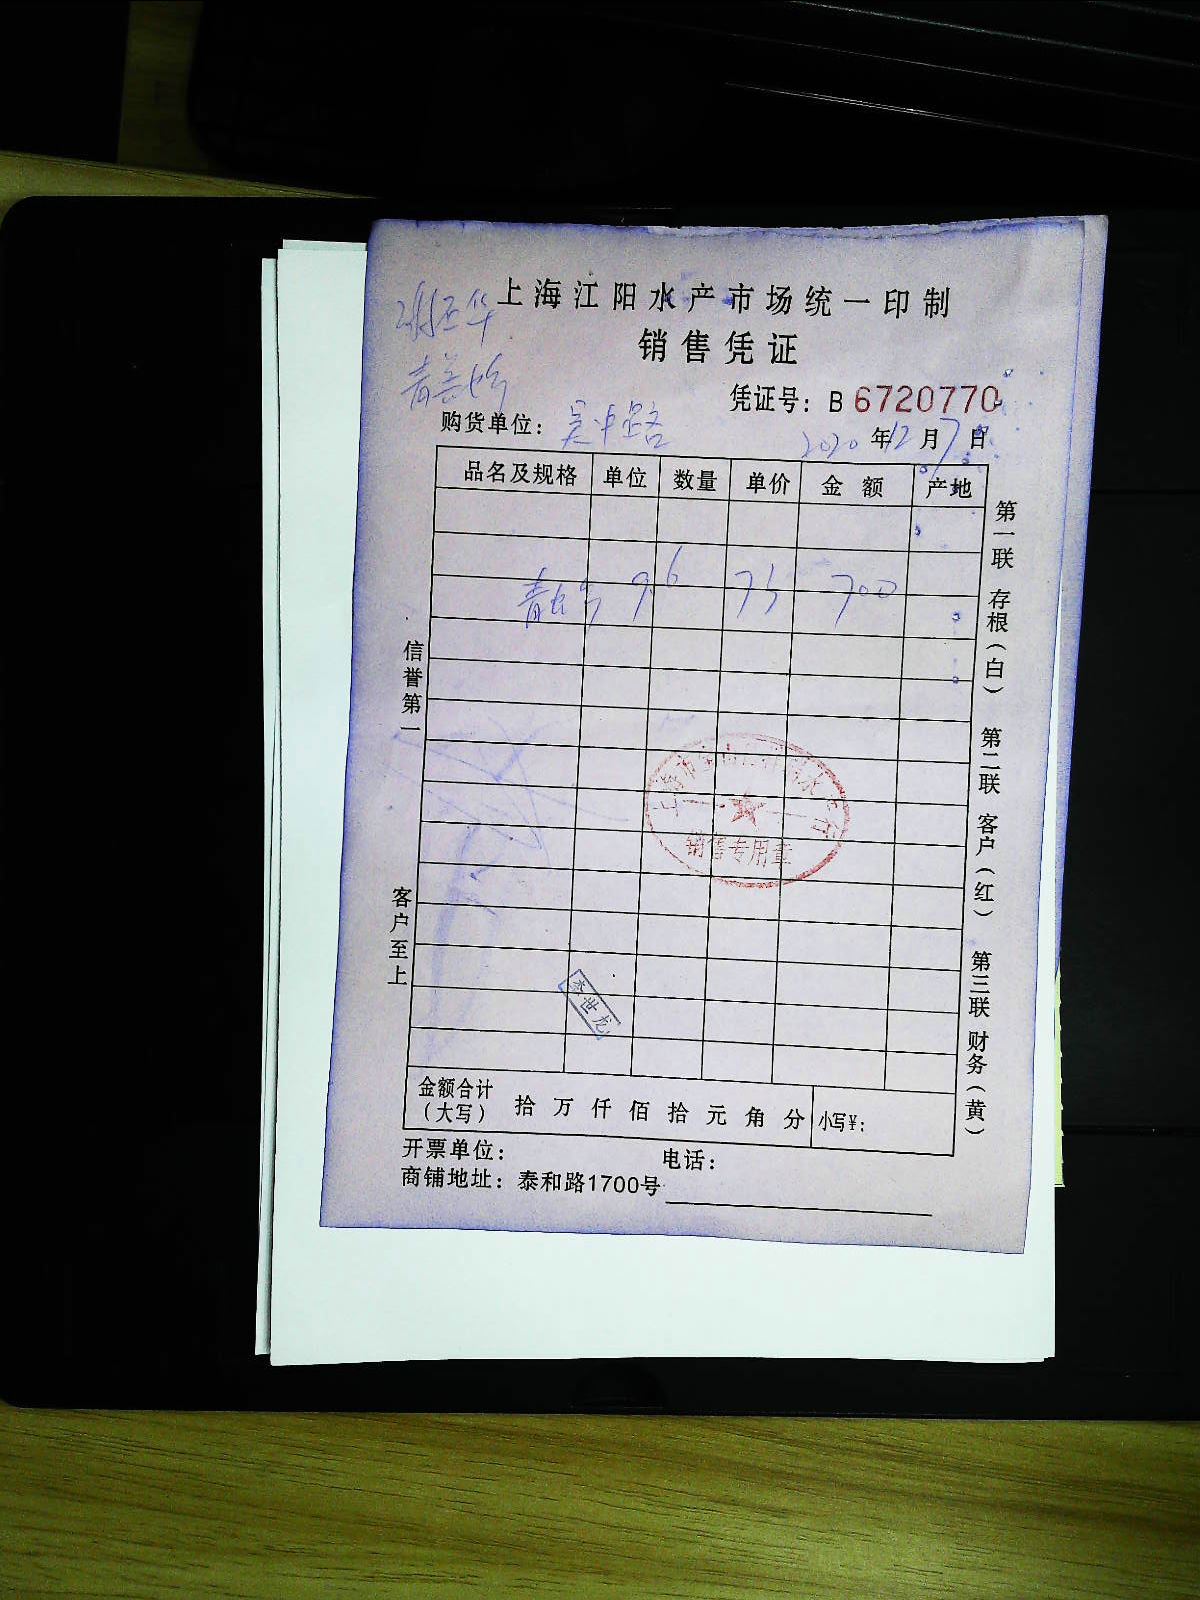 上海江阳水产市场统一印制
销售凭证
凭证号：B 6720770
购货单位：吴中路
2020年12月7日
品名及规格 单位 数量 单价 金额 产地
9.6 75 700
销售专用章
李世龙
金额合计（大写） 拾 万 仟 佰 拾 元 角 分 小写¥：
开票单位： 电话：
商铺地址：泰和路1700号
信誉第一 客户至上
第一联 存根（白） 第二联 客户（红） 第三联 财务（黄）